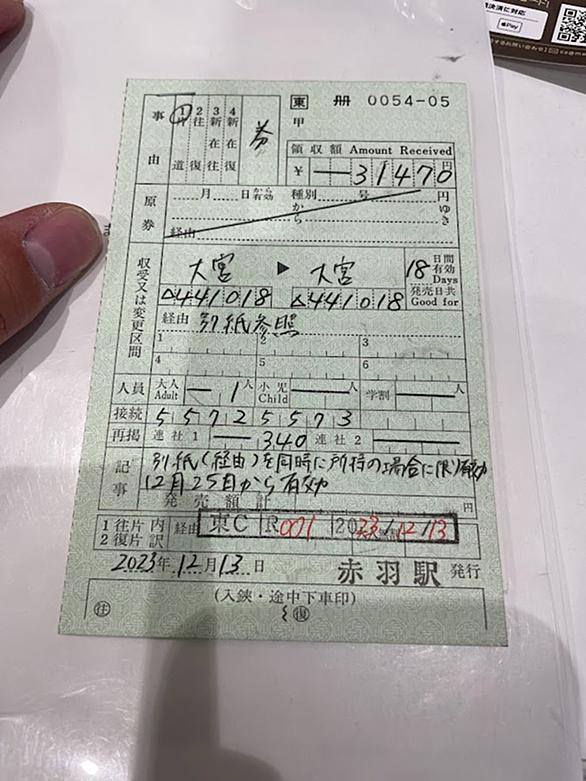 決済に対応
Pay
東 冊 0054-05
甲
事由
1片道 2往復 3新在往 4新在復 券
領収額 Amount Received
¥ 31470円
原券
月 日から有効 種別 号 円
から ゆき
経由
収受又は変更区間
大宮 ▶ 大宮 18日間有効 Days
441018 441018 発売日共 Good for
経由 別紙参照
1 2 3
4 5 6
人員 大人 Adult 1人 小児 Child 人 学割 人
接続 55725573
再掲 連社1 340 連社2
記事
別紙(経由)を同時に所持の場合に限り有効
12月25日から有効
発売額計 円
1往片 2復片 内訳 経由 東C R001 2023/12/13
2023年12月13日 赤羽駅 発行
(入鋏・途中下車印)
往 復